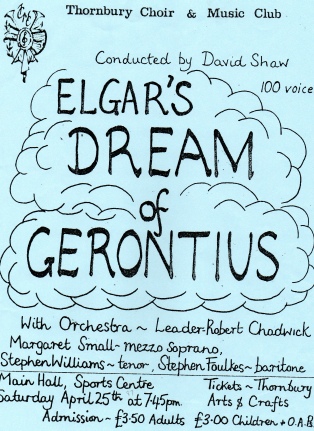 Thornbury Choir & Music Club
Conducted by David Shaw
100 voice
ELGAR'S
DREAM
of
GERONTIUS
With Orchestra ~ Leader-Robert Chadwick
Margaret Small~mezzo soprano,
Stephen Williams ~ tenor, Stephen Foulkes ~ baritone
Main Hall, Sports Centre
Tickets ~ Thornbury
Saturday April 25th at 7.45pm.
Arts & Crafts
Admission ~ £3·50 Adults £3·00 Children + O.A.P